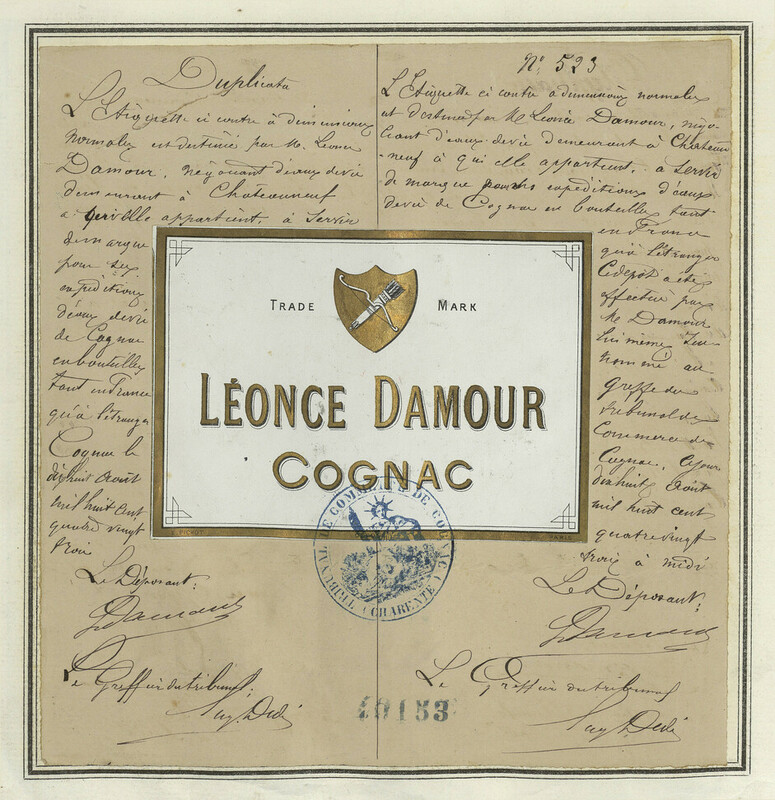 Duplicata
L'Etiquette ci contre à dimensions
normales est destinée par M. Léonce
Damour, négociant d'eaux de vie
demeurant à Chateauneuf
a qui elle appartient, à servir
de marque
pour ses
expéditions
d'eaux de vie
de Cognac
en bouteilles
tant en France
qu'à l'étranger
Cognac le
dix huit août
mil huit cent
quatre vingt
trois
Le Déposant:
LDamour
Le Greffier du tribunal,
N° 523
L'Etiquette ci contre à dimensions normales
est destinée par M. Léonce Damour, négo-
ciant d'eaux de vie demeurant à Chateau
neuf à qui elle appartient, à servir
de marque pour ses expéditions d'eaux
de vie de Cognac en bouteilles tant
en France
qu'à l'étranger
Ce dépôt a été
effectué par
M. Damour
lui même sus
nommé au
greffe du
tribunal de
Commerce de
Cognac, ce jour
dix huit août
mil huit cent
quatre vingt
trois à midi
Le Déposant;
LDamour
Le Greffier du tribunal
TRADE MARK
LÉONCE DAMOUR
COGNAC
PARIS
TRIBUNAL DE COMMERCE DE COGNAC
(CHARENTE)
40153